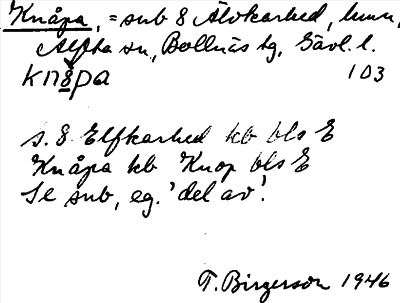 Knåpa, = sub 8 Älvkarhed, hmn,
Alfta sn, Bollnäs tg, Gävl. l.
knåpa 103
s. 8 Elfkarhed kb bls E
Knåpa kb Knop bls E
Se sub, eg. 'del av'.
T. Birgerson 1946